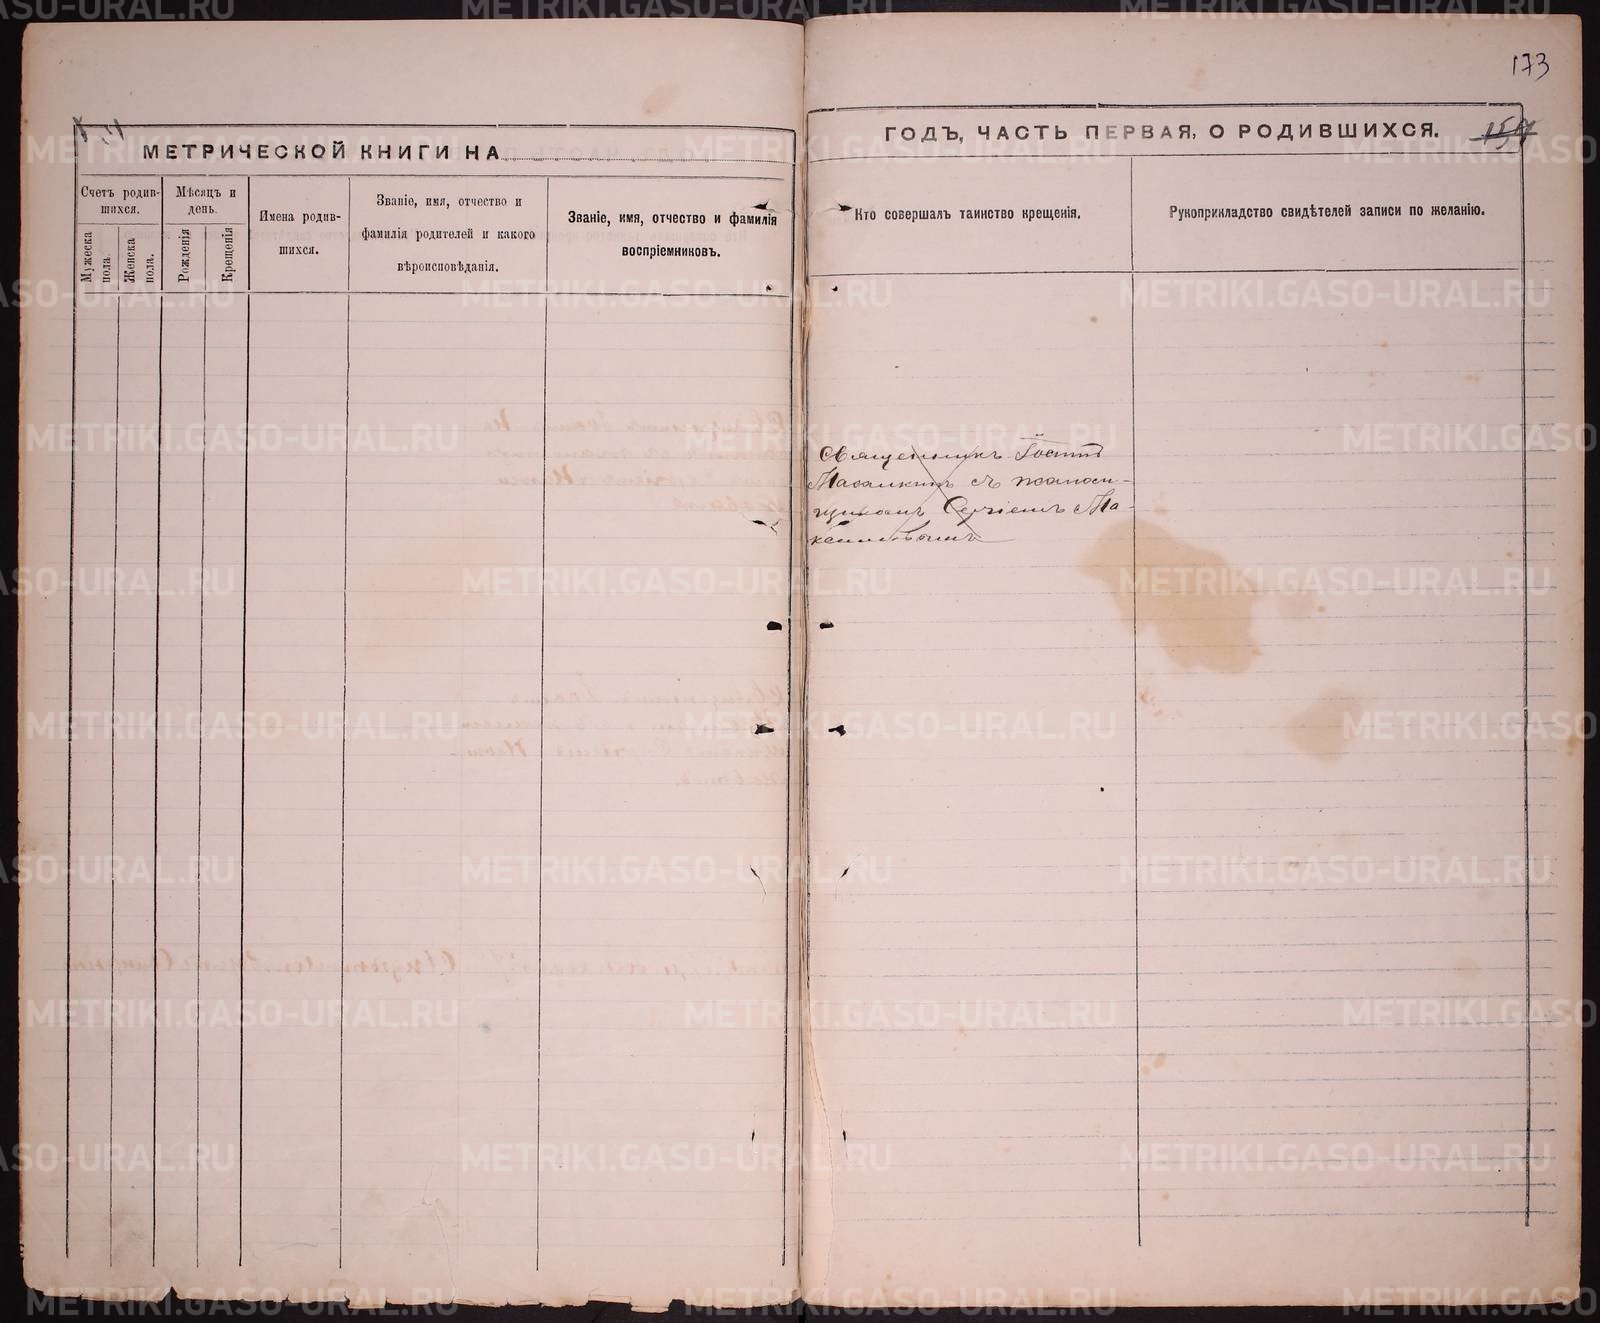 173
МЕТРИЧЕСКОЙ КНИГИ НА
ГОДЪ, ЧАСТЬ ПЕРВАЯ, О РОДИВШИХСЯ.
Счетъ родив-
шихся.
Мужеска
пола.
Женска
пола.
Мѣсяцъ и
день.
Рожденія
Крещенія
Имена родив-
шихся.
Званіе, имя, отчество и
фамилія родителей и какого
вѣроисповѣданія.
Званіе, имя, отчество и фамилія
воспріемниковъ.
Кто совершалъ таинство крещенія.
Рукоприкладство свидѣтелей записи по желанію.
Священникъ
съ псаломщи-
Сергіемъ Ма-
METRIKI.GASO-URAL.RU